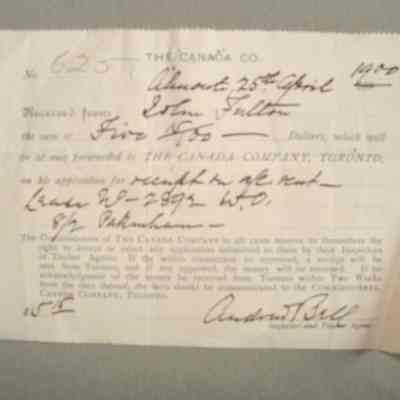 THE CANADA CO.
No 625
Almonte, 25th April 1900
RECEIVED FROM John Fulton
the sum of Five xx/100 Dollars, which will
be at once forwarded to THE CANADA COMPANY, TORONTO,
on his application for receipt on a/c rent
Lease W-2892 W.O.
8/2 Pakenham
The Commissioners of THE CANADA COMPANY in all cases reserve to themselves the
right to accept or reject any applications submitted to them by their Inspectors
or Timber Agents. If the within transaction is approved, a receipt will be
sent from Toronto, and if not approved, the money will be returned. If no
acknowledgment of the money be received from Toronto within Two Weeks
from the date thereof, the facts should be communicated to the COMMISSIONERS,
CANADA COMPANY, TORONTO.
Andrew Bell
Inspector and Timber Agent